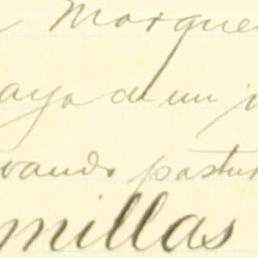 Morque
aya de un
vando pastur
millas